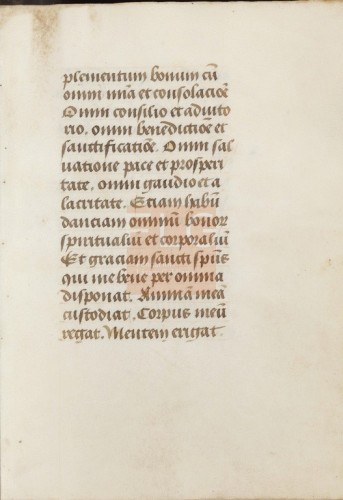 plementum bonum cū
omni mīa et consolaciōe
Omni consilio et adiuto
rio. omni benedictiōe et
sanctificatiōe. Omni sal
vatione pace et prosperi
tate. omni gaudio et a
lacritate. Etiam habū
danciam omniū bonoꝝ
spiritualiū et corporaliū
Et graciam sancti spūs
qui me bene per omnia
disponat. Animā meā
custodiat. Corpus meū
regat. Mentem erigat